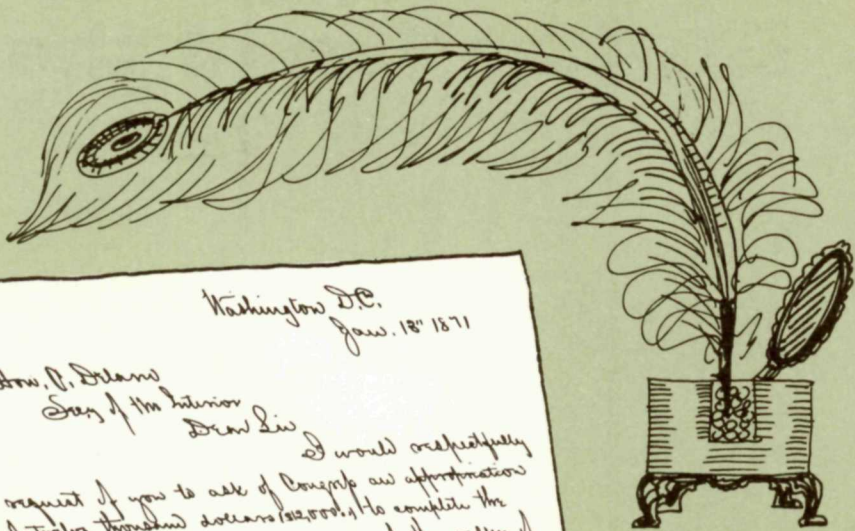 Washington D.C.
Jan. 18" 1871
Hon. C. Delano
Secy of the Interior
Dear Sir
I would respectfully
request of you to ask of Congress an appropriation
of Twelve thousand dollars ($12,000.) to complete the